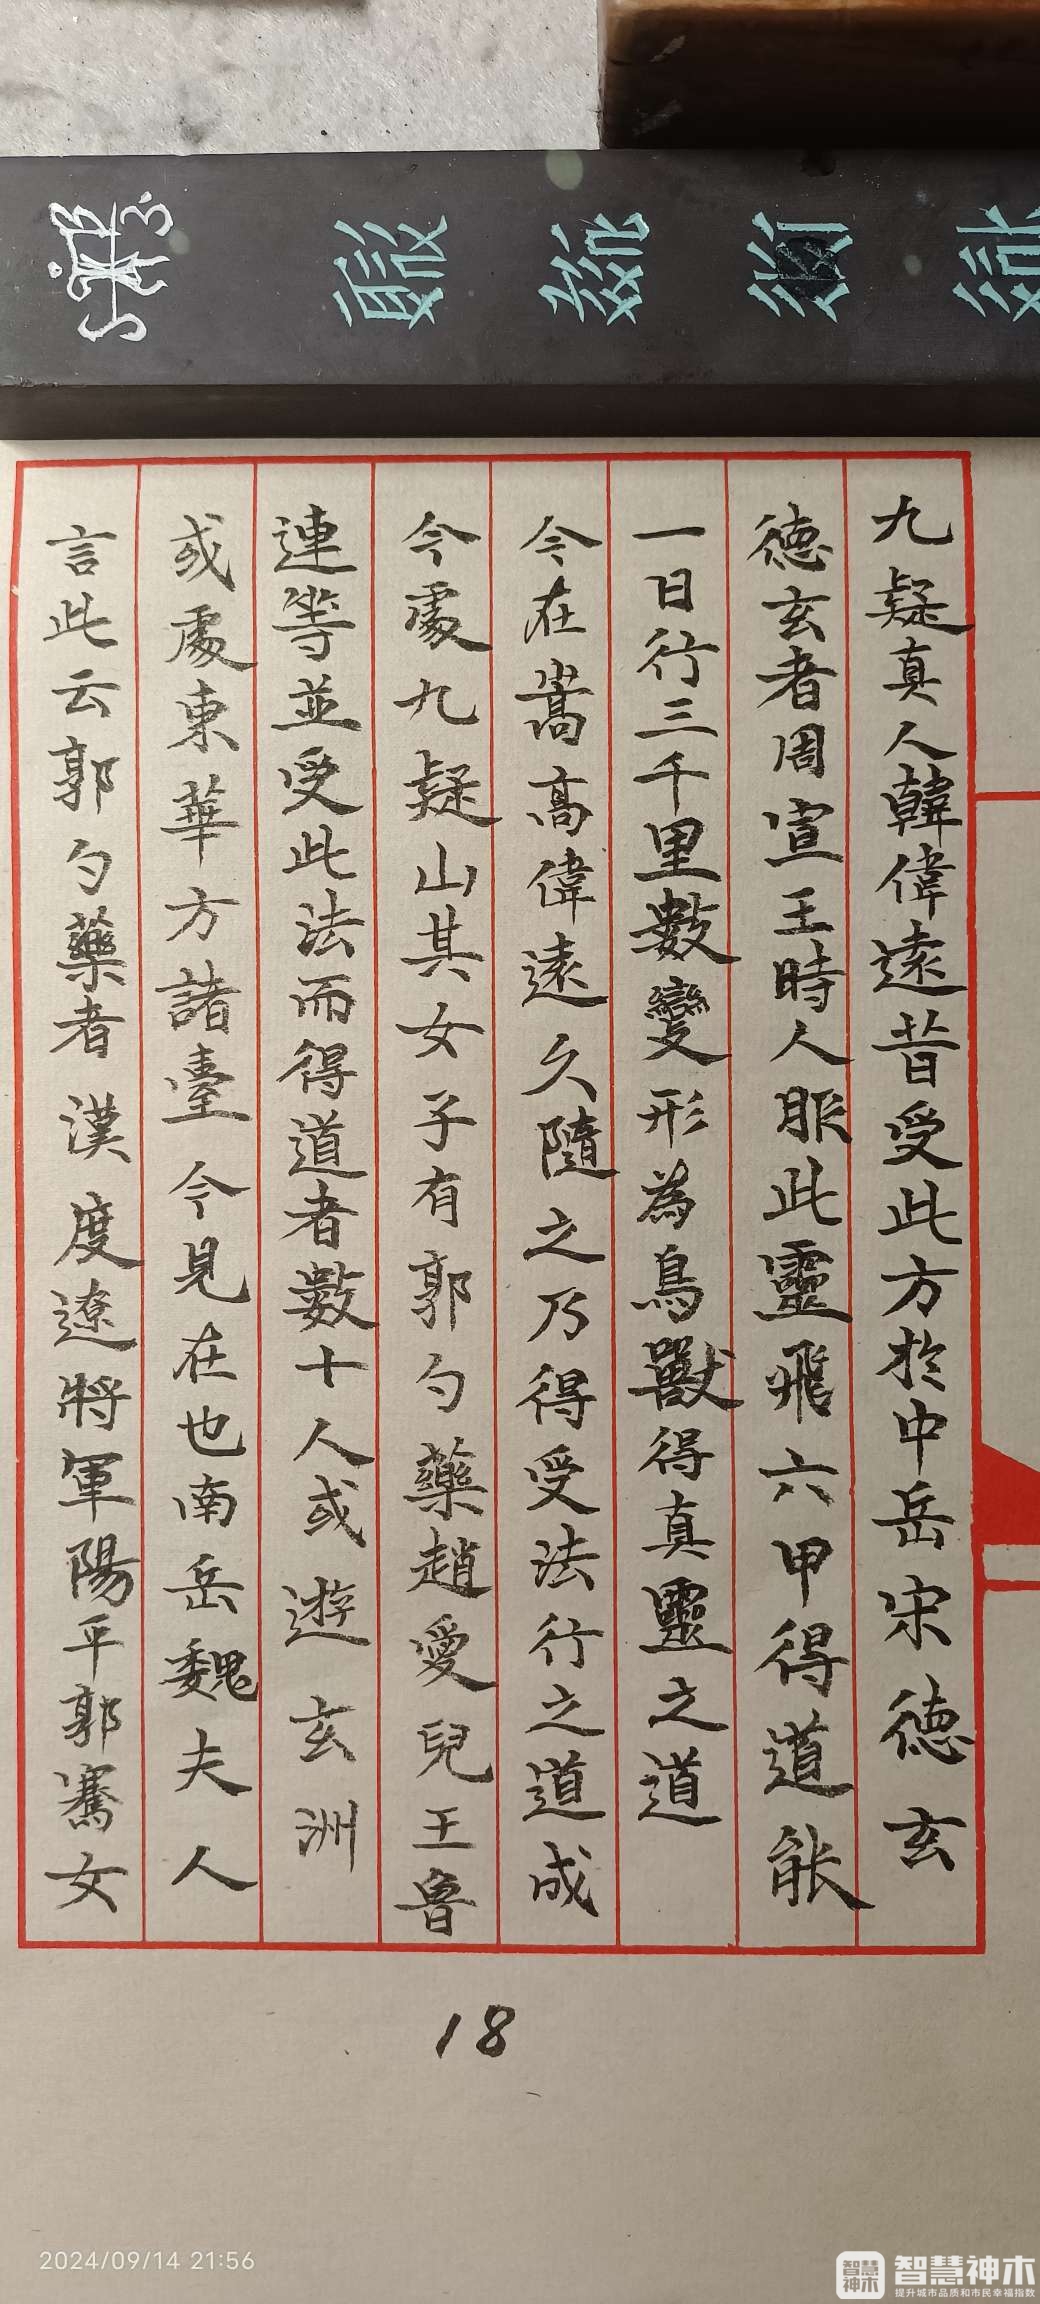 九疑真人韓偉遠昔受此方於中岳宋德玄
德玄者周宣王時人服此靈飛六甲得道能
一日行三千里數變形為鳥獸得真靈之道
今在嵩高偉遠久隨之乃得受法行之道成
今處九疑山其女子有郭勺藥趙愛兒王魯
連等並受此法而得道者數十人或遊玄洲
或處東華方諸臺今見在也南岳魏夫人
言此云郭勺藥者漢度遼將軍陽平郭騫女
18
2024/09/14 21:56
智慧神木
智慧神木
提升城市品质和市民幸福指数